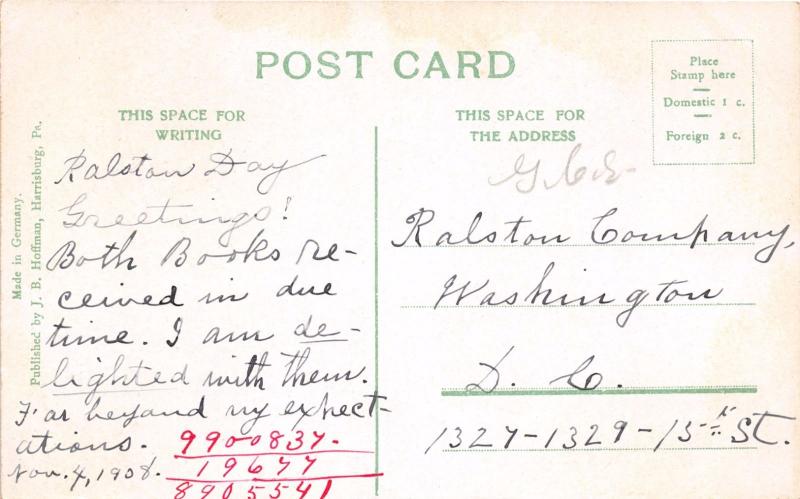 POST CARD
Place
Stamp here
Domestic 1 c.
Foreign 2 c.
THIS SPACE FOR
WRITING
THIS SPACE FOR
THE ADDRESS
Made in Germany.
Published by J. B. Hoffman, Harrisburg, Pa.
Ralston Day
Greetings!
Both Books re-
ceived in due
time. I am de-
lighted with them.
Far beyond my expect-
ations.
Nov. 4, 1908.
9900837.
19677
8905541
Ralston Company,
Washington
D. C.
1327-1329-15th St.